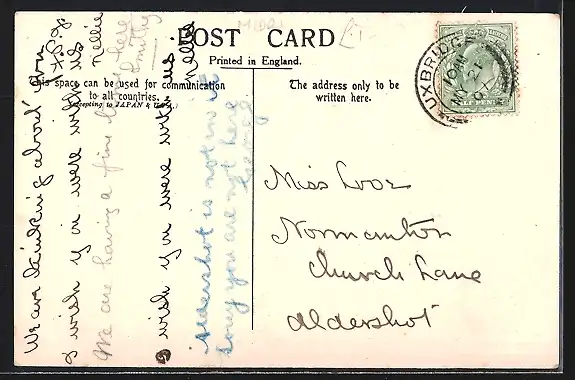 POST CARD
Printed in England.
This space can be used for communication
to all countries.
(Excepting to JAPAN & U.S.A.)
The address only to be
written here.
UXBRIDGE
HALF PENNY
MIDDX
£1
Miss Loos
Normanton
Church Lane
Aldershot
We are thinking about you
I wish you were with us
Nellie
We are having a fine time here
I wish you were with us
Nellie
Aldershot is not in it
Sorry you are not here
George